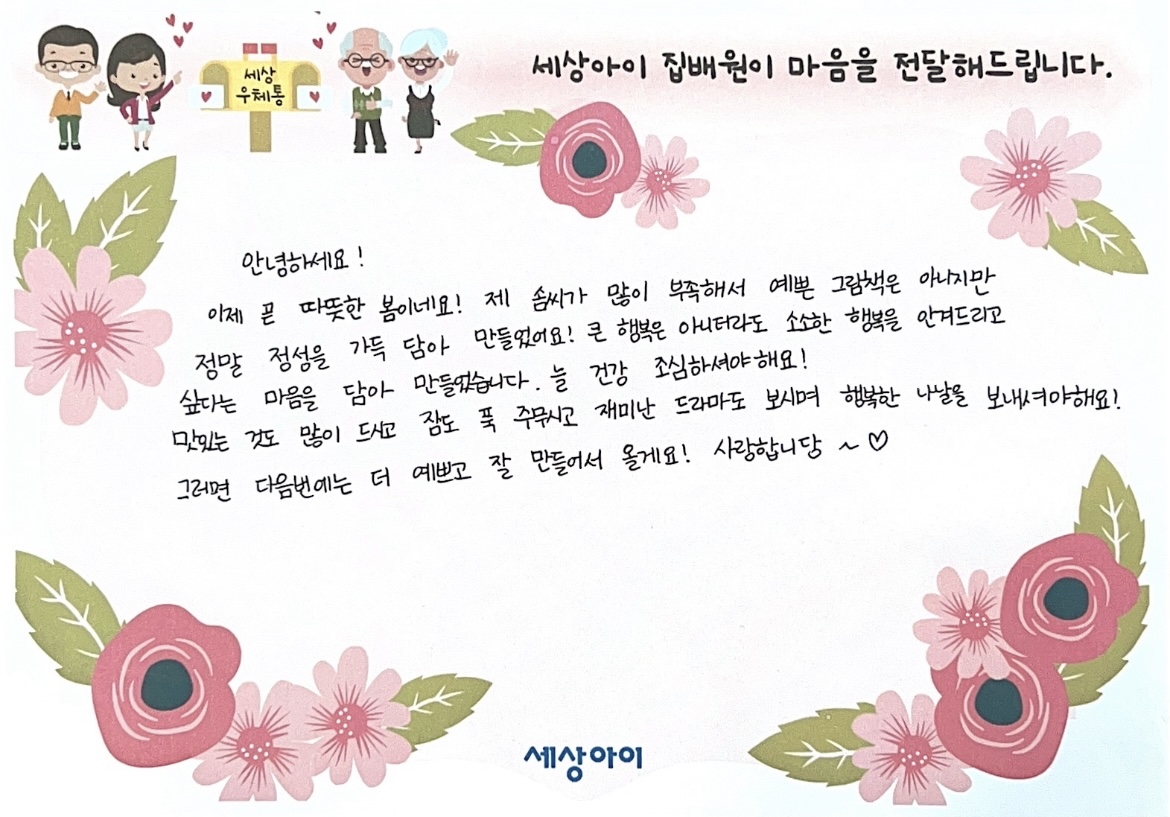 세상아이 집배원이 마음을 전달해드립니다.
세상
우체통
안녕하세요!
이제 곧 따뜻한 봄이네요! 제 솜씨가 많이 부족해서 예쁜 그림책은 아니지만
정말 정성을 가득 담아 만들었어요! 큰 행복은 아니더라도 소소한 행복을 안겨드리고
싶다는 마음을 담아 만들었습니다. 늘 건강 조심하셔야해요!
맛있는 것도 많이 드시고 잠도 푹 주무시고 재미난 드라마도 보시며 행복한 나날을 보내셔야해요!
그러면 다음번에는 더 예쁘고 잘 만들어서 올게요! 사랑합니당 ~ ♡
세상아이